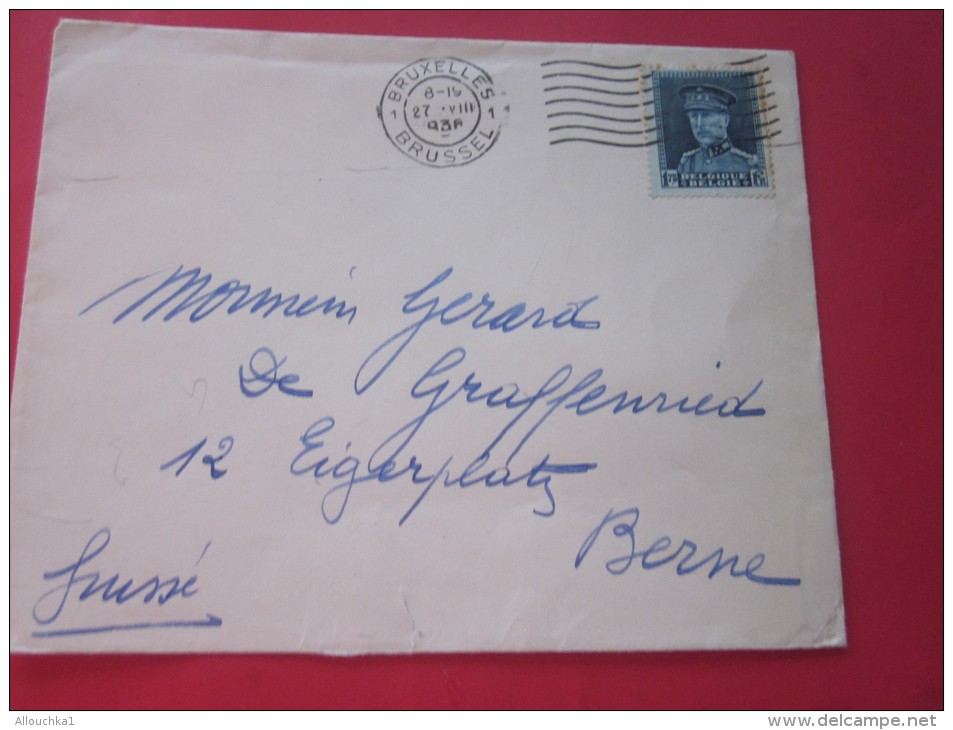 BRUXELLES
27 VIII
1 1
BRUSSEL
BELGIQUE
BELGIE
Monsieur Gerard
De Graffenried
12 Eigerplatz
Berne
Suisse
Allouchka1
www.delcampe.net